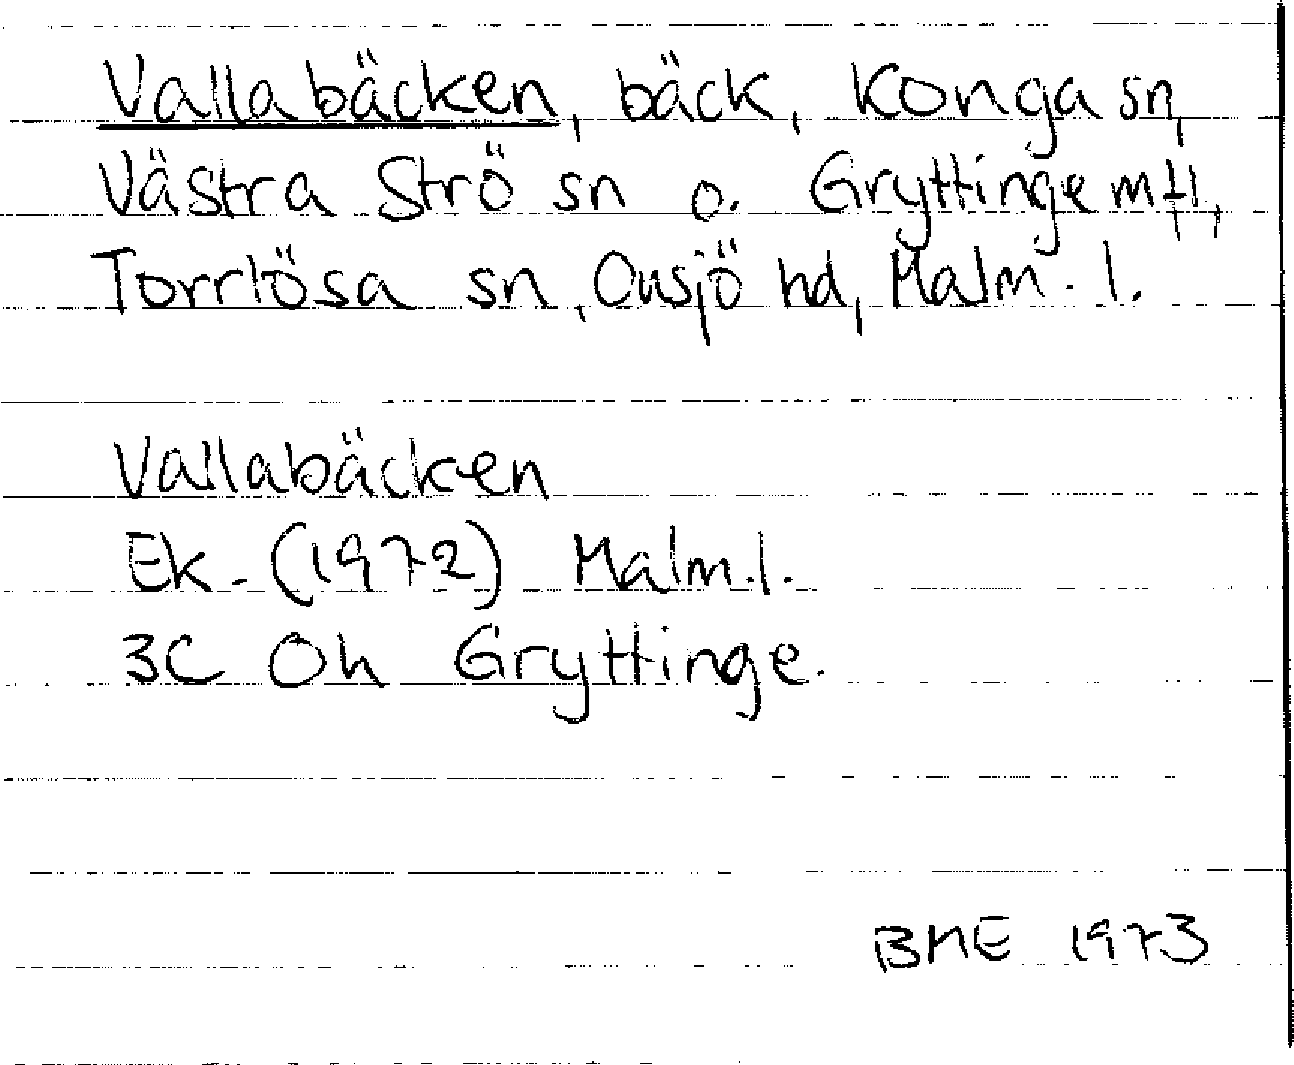 Vallabäcken, bäck, Konga sn,
Västra Strö sn o. Gryttinge mfl,
Torrlösa sn, Onsjö hd, Malm. l.
Vallabäcken
Ek. (1972) Malm.l.
3C Oh Gryttinge.
BME 1973